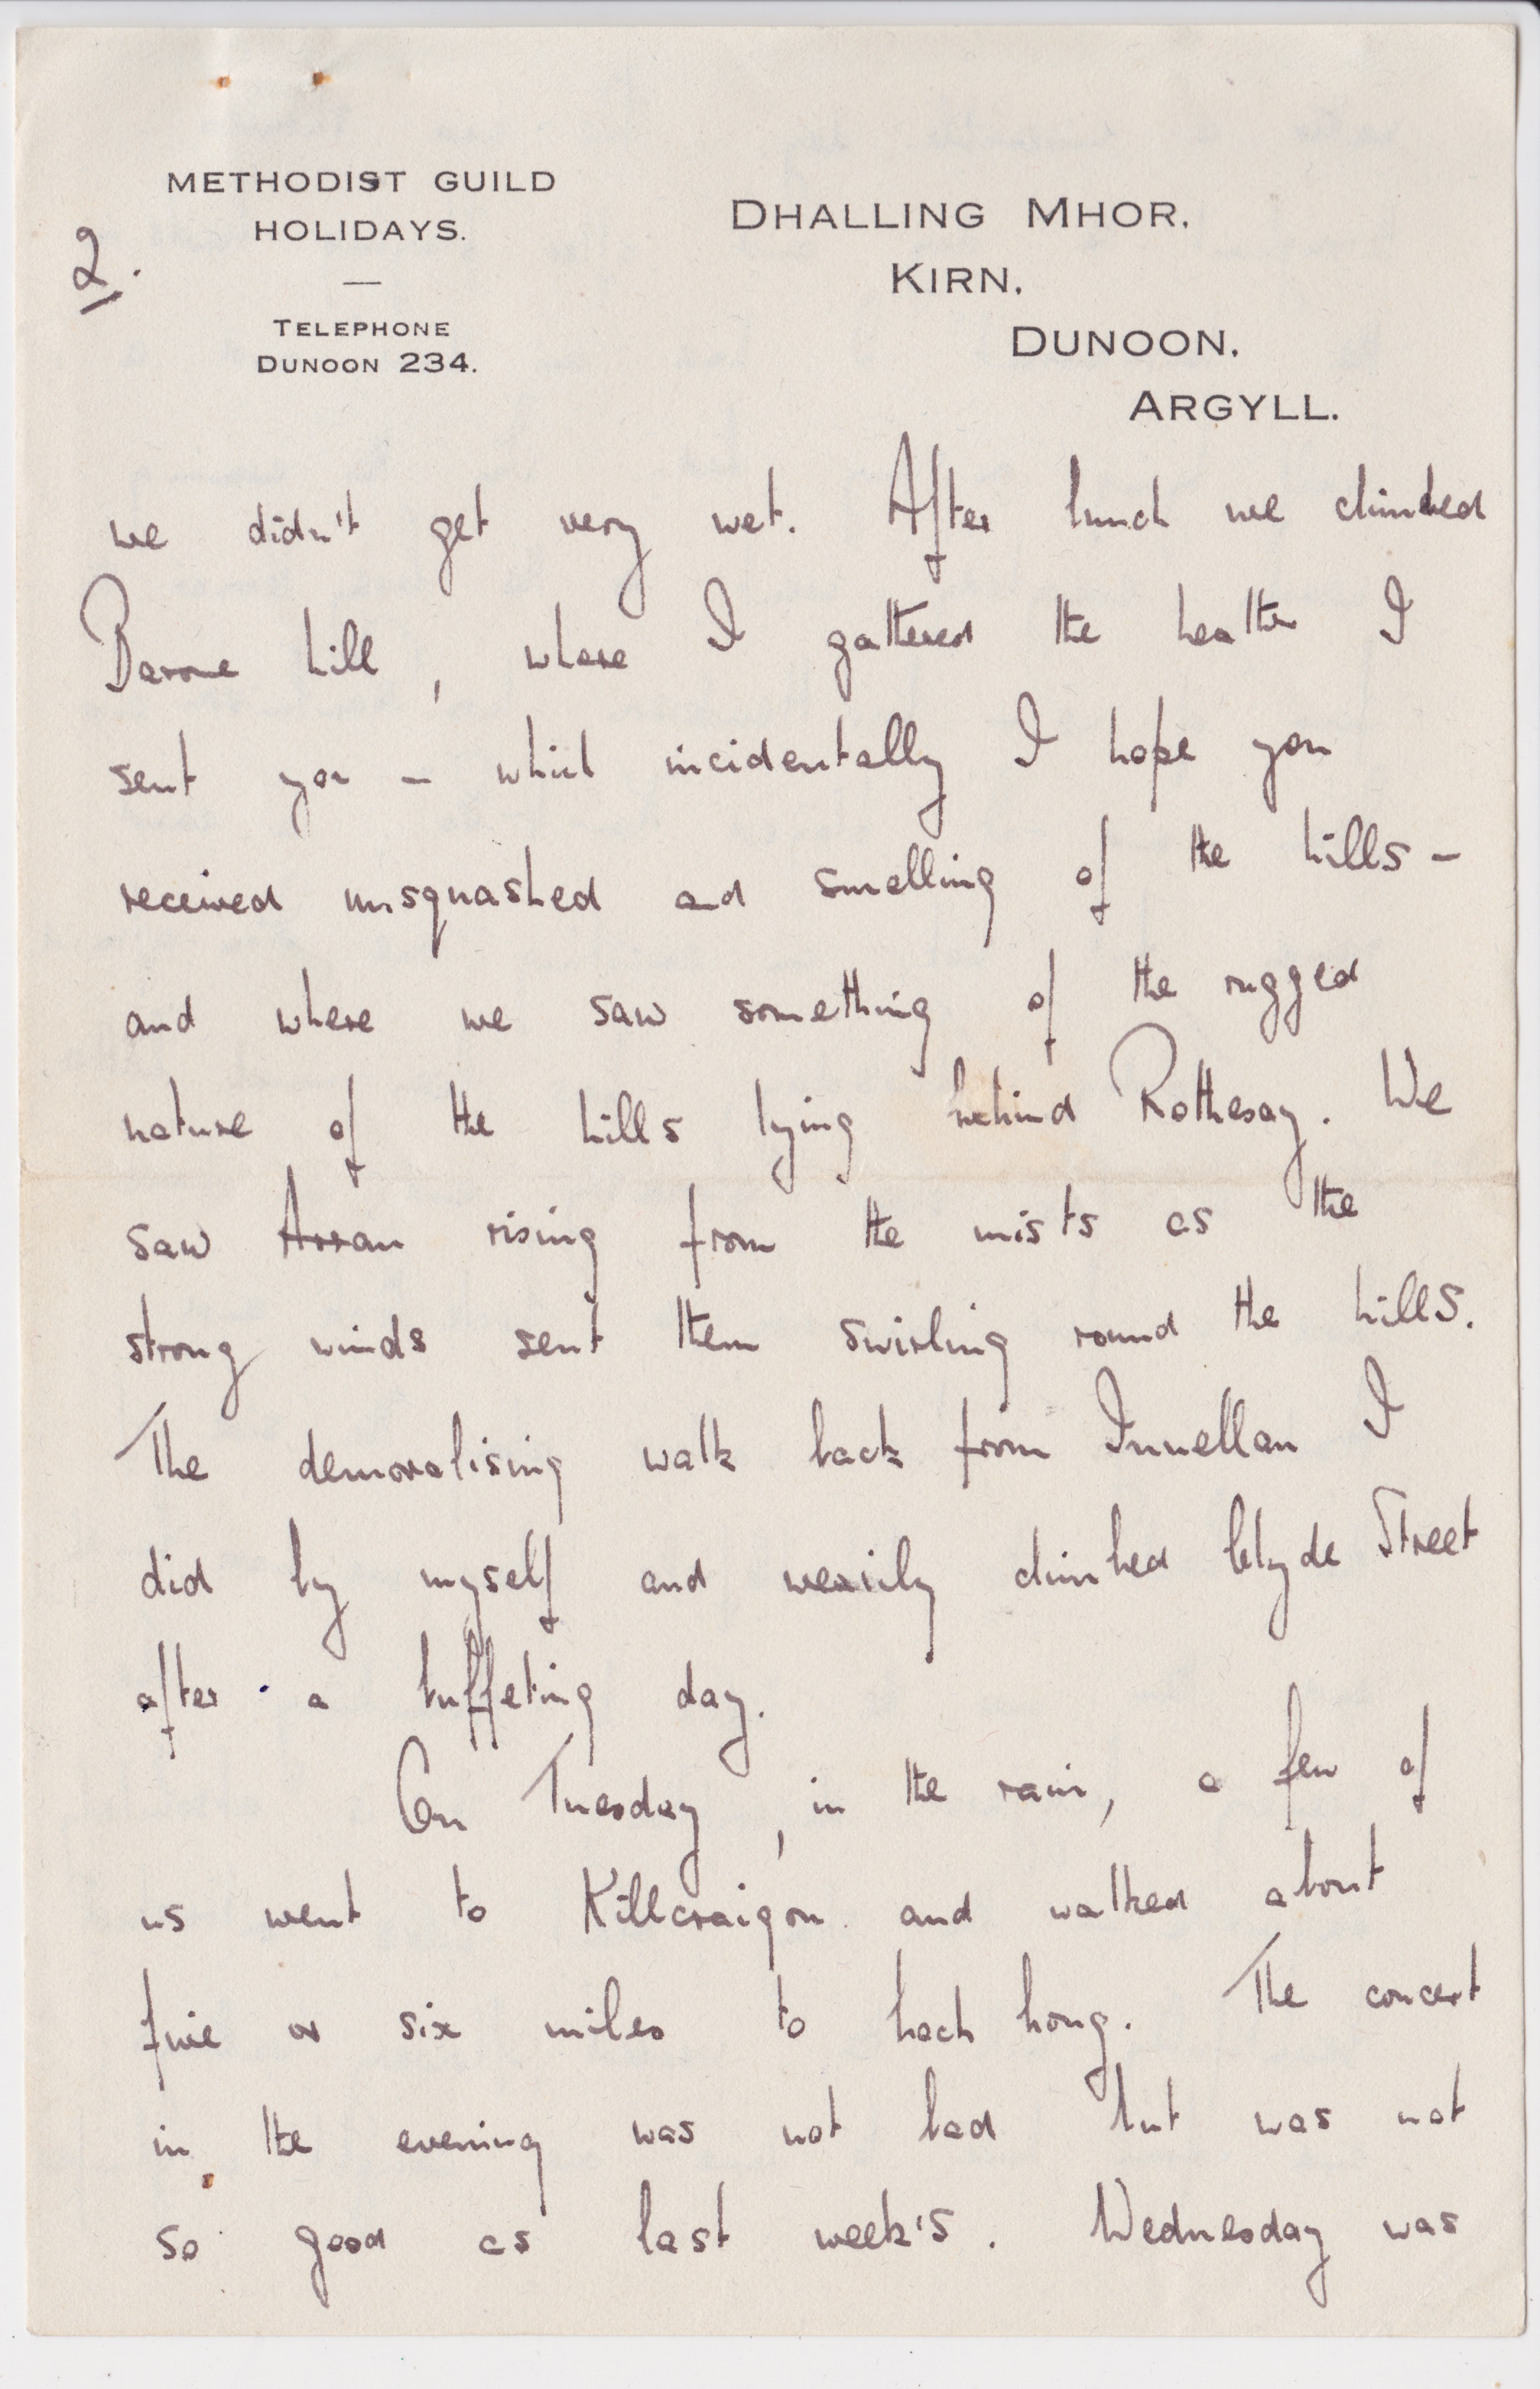 2.
METHODIST GUILD
HOLIDAYS.
—
TELEPHONE
DUNOON 234.
DHALLING MHOR,
KIRN,
DUNOON,
ARGYLL.
we didn't get very wet. After lunch we climbed
Barone hill, where I gathered the heather I
sent you – which incidentally I hope you
received unsquashed and smelling of the hills –
and where we saw something of the rugged
nature of the hills lying behind Rothesay. We
saw Arran rising from the mists as the
strong winds sent them swirling round the hills.
The demoralising walk back from Innellan I
did by myself and wearily climbed Clyde Street
after a buffeting day.
On Tuesday, in the rain, a few of
us went to Killcraigon and walked about
five or six miles to Loch Long. The concert
in the evening was not bad but was not
so good as last week's. Wednesday was